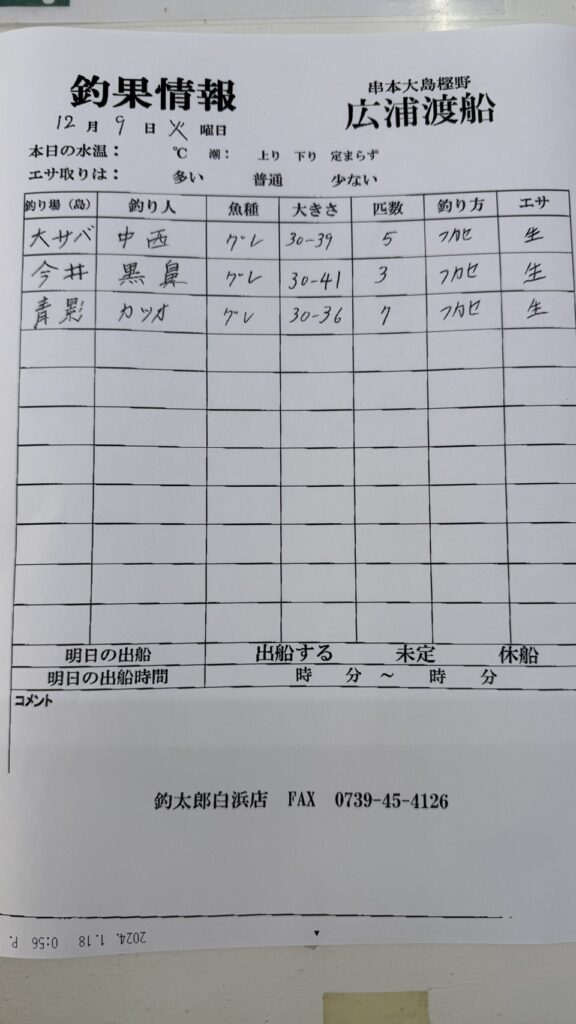 釣果情報
串本大島樫野
広浦渡船
12月 9日 火 曜日
本日の水温： ℃ 潮： 上り 下り 定まらず
エサ取りは： 多い 普通 少ない
釣り場（島） 釣り人 魚種 大きさ 匹数 釣り方 エサ
大サバ 中西 グレ 30-39 5 フカセ 生
今井 黒鼻 グレ 30-41 3 フカセ 生
青影 カツオ グレ 30-36 7 フカセ 生
明日の出船 出船する 未定 休船
明日の出船時間 時 分 ～ 時 分
コメント
釣太郎白浜店 FAX 0739-45-4126
2024. 1.18 0:56 P.